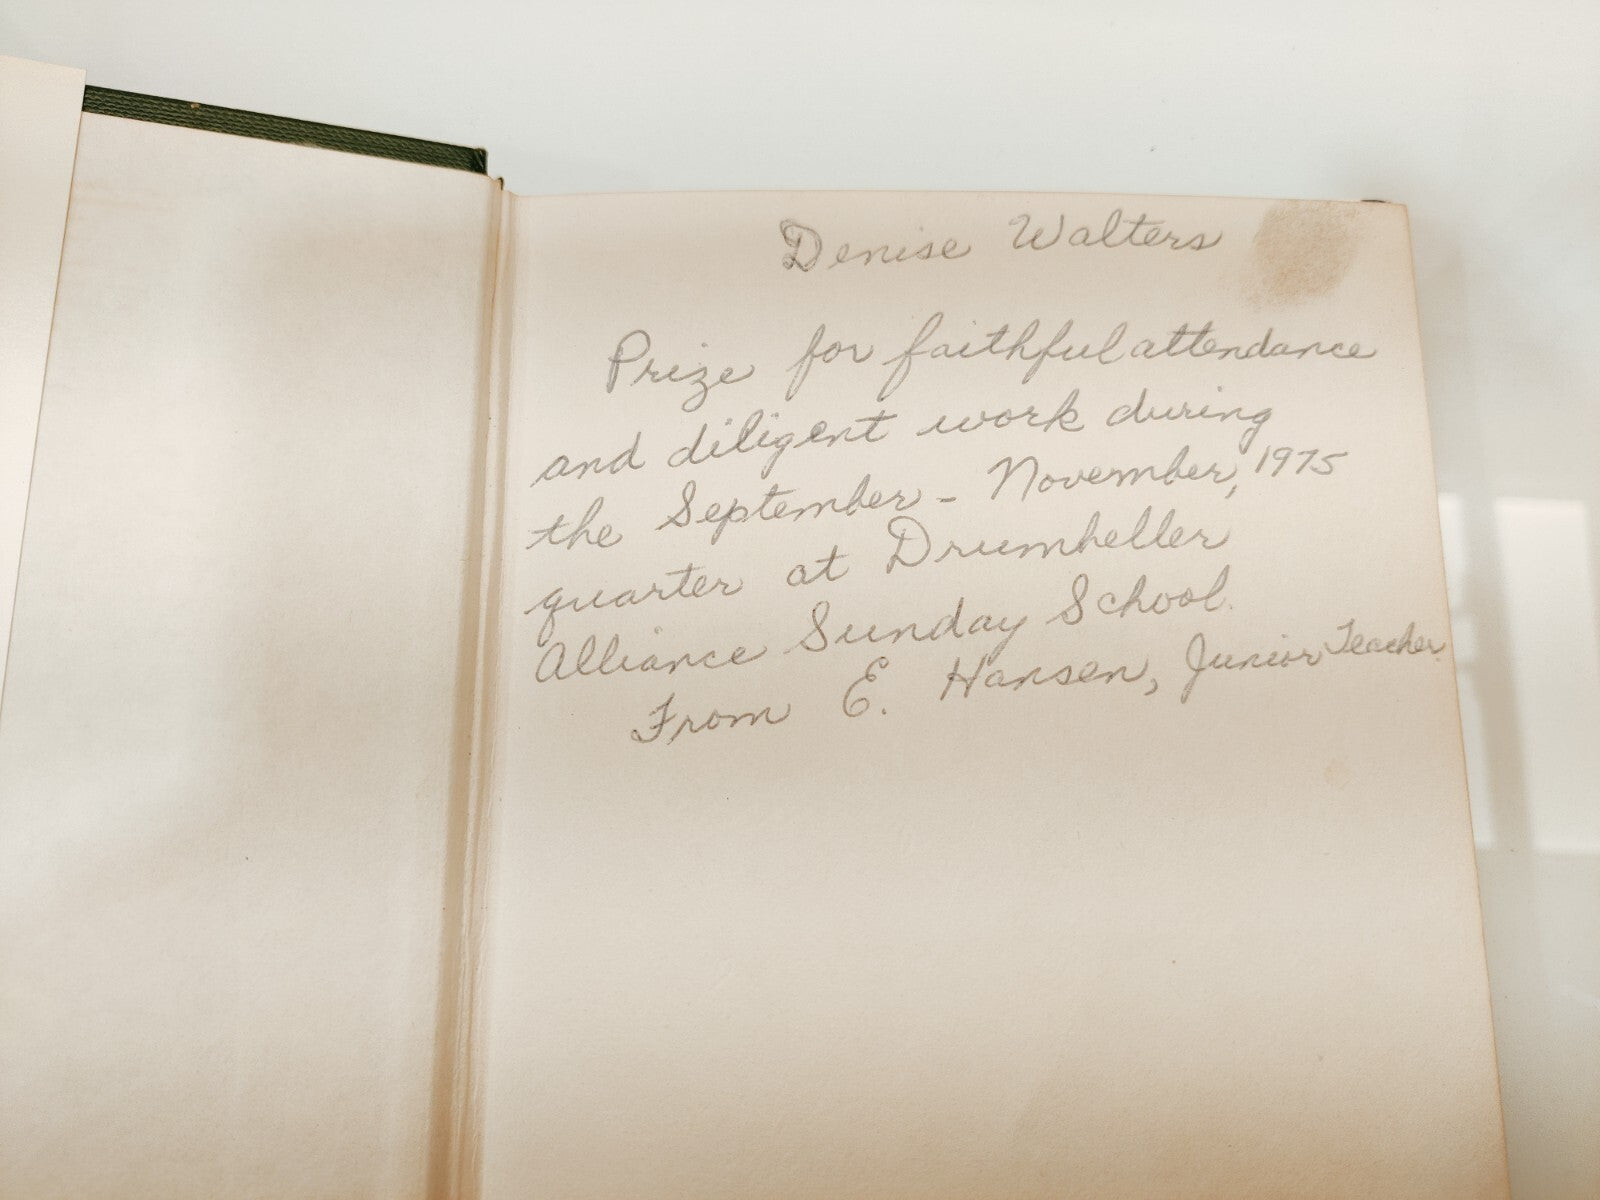 Denise Walters
Prize for faithful attendance
and diligent work during
the September - November, 1975
quarter at Drumheller
Alliance Sunday School.
From E. Hansen, Junior Teacher